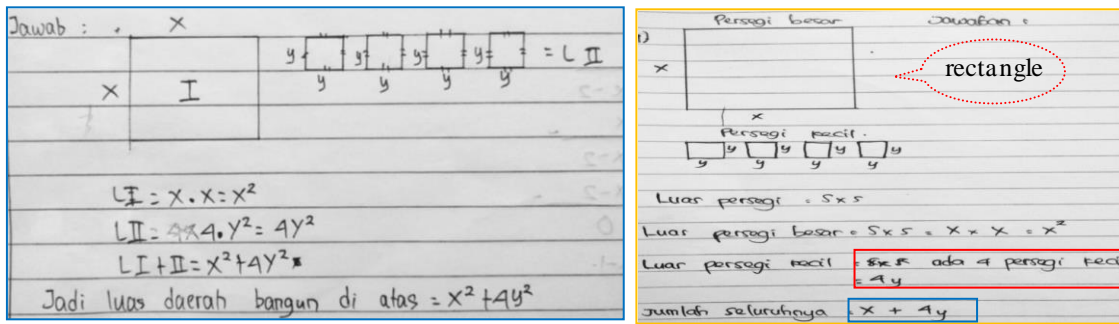 Jawab :
x
x
I
y y y y = L II
y y y y
LI = x . x = x²
LII = 4 . y² = 4y²
LI + II = x² + 4y²
Jadi luas daerah bangun di atas = x² + 4y²
Persegi besar Jawaban :
1)
x
rectangle
x
Persegi kecil .
y y y y
y y y y
Luas persegi = s x s
Luas persegi besar = s x s = x x x = x²
Luas persegi kecil = s x s ada 4 persegi keci
= 4y
Jumlah seluruhnya = x + 4y